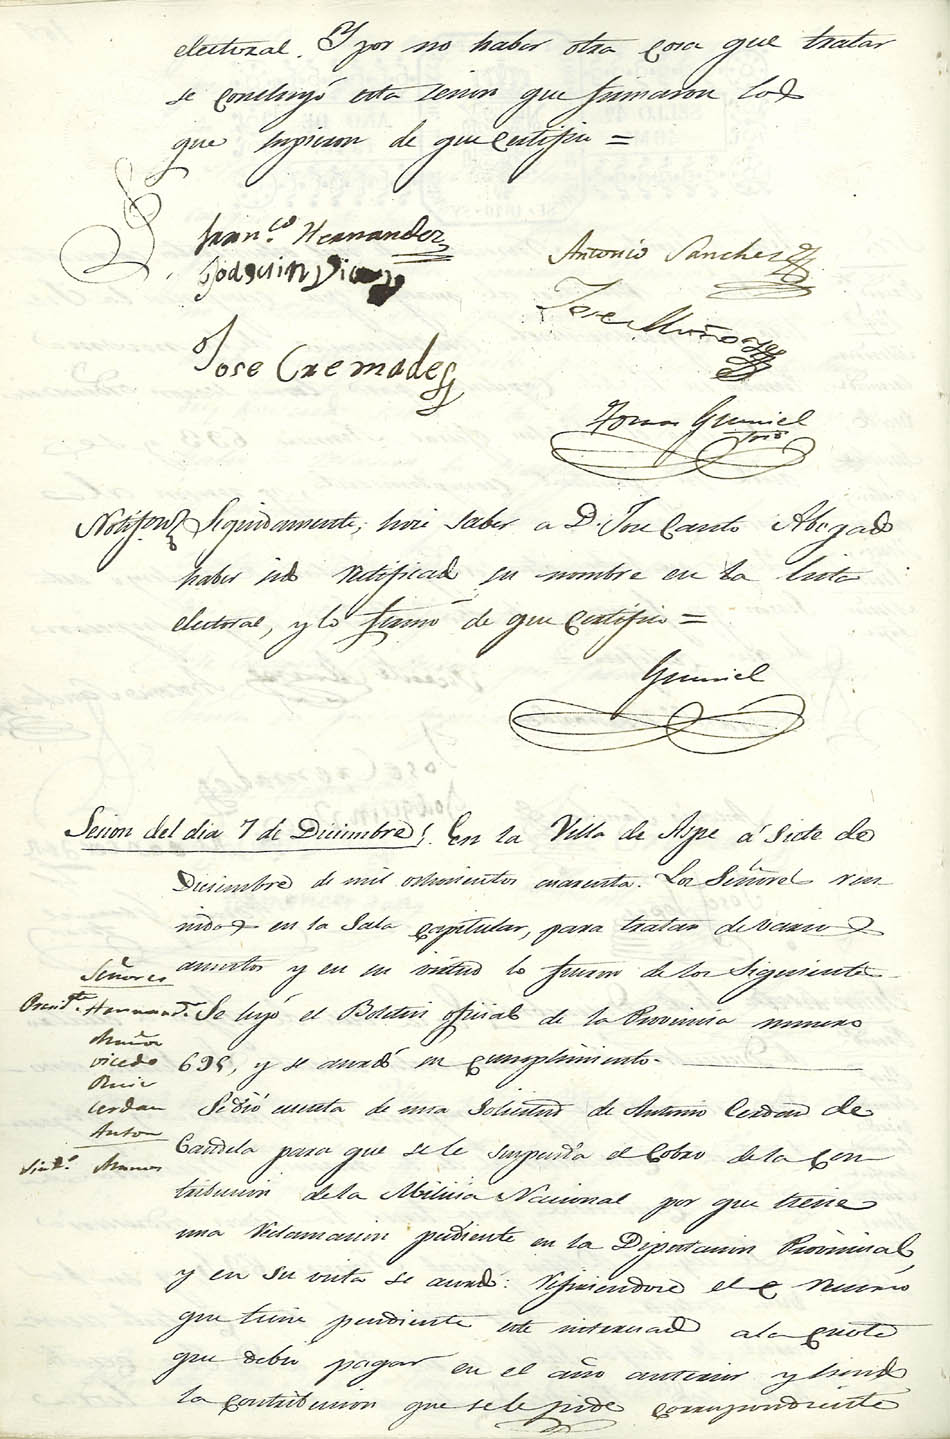 electoral. Y por no haber otra cosa que tratar
se concluyó esta sesion que firmaron los
que supieron de que Certifico =
Fran.co Hernandez
Antonio Sanchez
Joaquin Vicedo
Jose Muñoz
Jose Cremades
Tomas Gumiel
Srio
Notifon Seguidamente, hice saber a D. Jose Canto Abogado
haber sido rectificado su nombre en la lista
electoral, y lo firmó de que certifico =
Gumiel
Sesion del dia 7 de Diciembre. En la Villa de Aspe á siete de
Diciembre de mil ochocientos cuarenta. Los Señores reu
nidos en la Sala capitular, para tratar de varios
asuntos y en su virtud lo fueron de los siguientes
Señores
Presid.te Hernand.z
Muñoz
Vicedo
Ruiz
Cerdan
Anton
Sind.o
Se leyó el Boletin oficial de la Provincia numero
695, y se acordó su cumplimiento.
Se dió cuenta de una solicitud de Antonio Cerdan de
Candela para que se le suspenda el cobro de la con
tribucion de la Milicia Nacional por que tiene
una reclamacion pendiente en la Diputacion Provincial,
y en su vista se acordó: refiriendose el recurso
que tiene pendiente este interesado a la cuota
que debió pagar en el año anterior y siendo
la contribucion que se le pide correspondiente